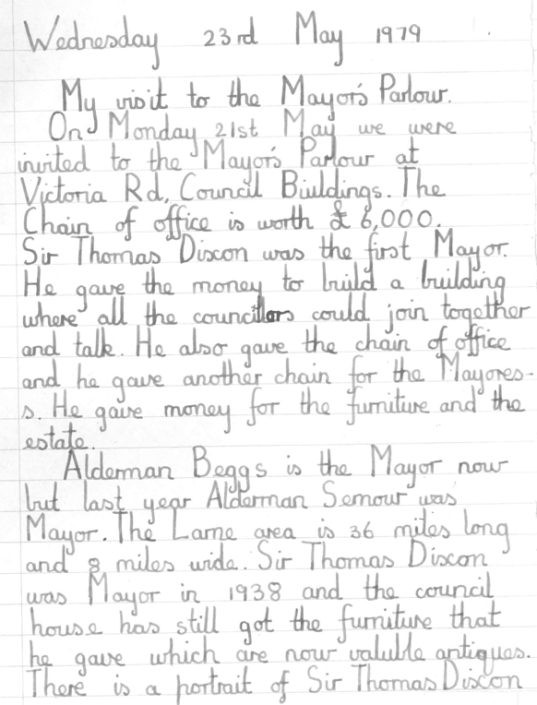 Wednesday 23rd May 1979
My visit to the Mayor's Parlour.
On Monday 21st May we were
invited to the Mayor's Parlour at
Victoria Rd, Council Biuldings. The
Chain of office is worth £ 6,000.
Sir Thomas Discon was the first Mayor.
He gave the money to build a building
where all the councillors could join together
and talk. He also gave the chain of office
and he gave another chain for the Mayores-
s. He gave money for the furniture and the
estate.
Alderman Beggs is the Mayor now
but last year Alderman Semour was
Mayor. The Larne area is 36 miles long
and 8 miles wide. Sir Thomas Discon
was Mayor in 1938 and the council
house has still got the furniture that
he gave which are now valuble antiques.
There is a portrait of Sir Thomas Discon